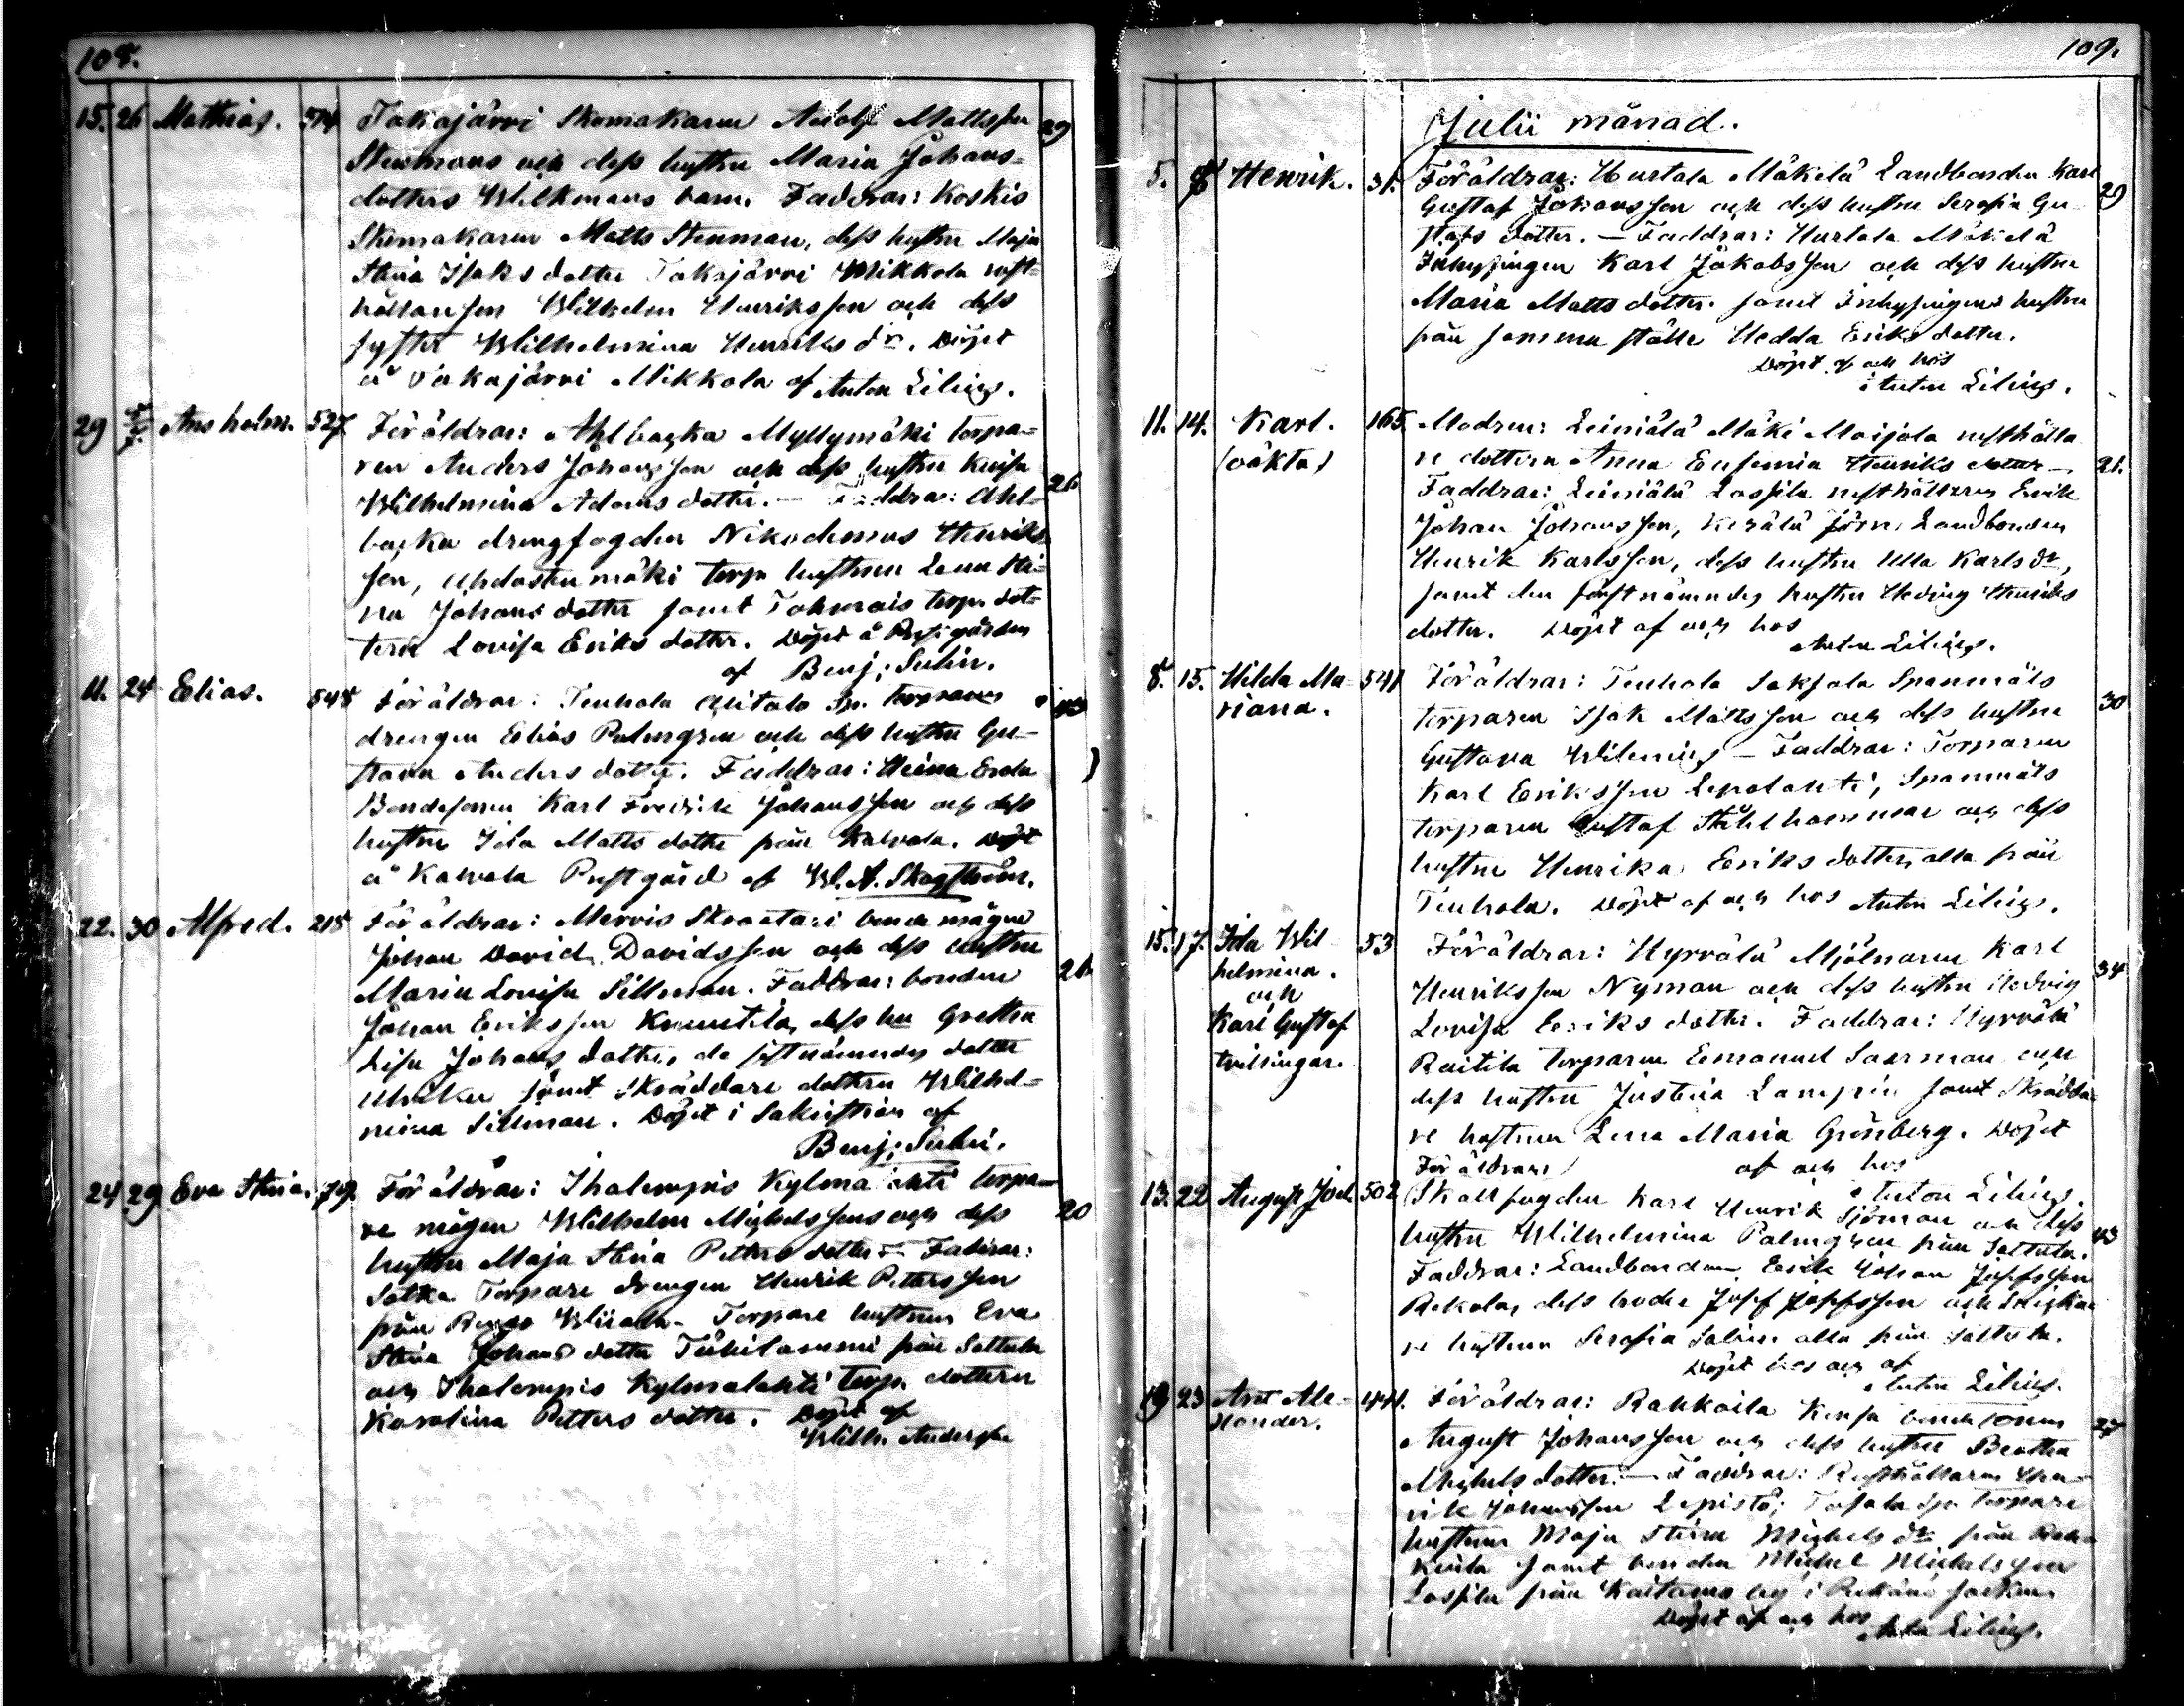 108.
15. 26 Mathias. 514 Takajärvi Skomakaren Adolf Mattsson 29
Stenmans och dess hustru Maria Johans-
dotters Wilkmans barn. Faddrar: Koskis
Skomakaren Matts Stenman, dess hustru Maja
Stina Isaks dotter Takajärvi Mikkola rust-
hållarsson Wilhelm Henriksson och dess
syster Wilhelmina Henriks dr. Döpt
å Takajärvi Mikkola af Anton Lilius.
29 Ans helm. 527. Föräldrar: Ahlbacka Myllymäki torpa-
ren Anders Johansson och dess hustru
Wilhelmina Adams dotter. — Faddrar: Ahl- 26
backa drengfogden Nikodemus Henriks-
son, mäki torp. hustrun Lena Sti-
na Johans dotter samt torp. dot-
tern Lovisa Eriks dotter. Döpt å Prestgården
af Benj: Sulin.
11. 24 Elias. 548 Föräldrar: Tenhola Alitalo Sp. torparns
drengen Elias Palmgren och dess hustru Gu-
stava Anders dotter. Faddrar: Heina
Bondesonen Karl Fredrik Johansson och dess
hustru Ida Matts dotter från Kalvola. Döpt
å Kalvola Prestgård af W. A. Skogström.
22. 30 Alfred. 218 Föräldrar: Mervis Skraatari bonde mågen
Johan David Davidsson och dess hustru
Maria Lovisa Sillman. Faddrar: bonden 26
Johan Eriksson Knuutila, dess hu Gretha
Lisa Johans dotter, de sistnämndes dotter
Ulrika samt Skräddare dottern Wilhel-
mina Sillman. Döpt i Sakristian af
Benj: Sulin.
24 29 Eva Stina. 79. Föräldrar: Ihalempis Kylmalahti torpa-
re mågen Wilhelm Michelssons och dess 20
hustru Maja Stina Petters dotter — Faddrar:
Torpare drengen Henrik Pettersson
från Torpare hustrun Eva
Stina Johans dotter från Sattula
och Ihalempis Kylmalahti torp. dottern
Karolina Petters dotter. Döpt af
Wilh. Andersson
109.
Julii månad.
5. Henrik. 31. Föräldrar: Hurtala Mäkelä Landbonden Karl
Gustaf Johansson och dess hustru Serafia Gu- 29
stafs dotter. — Faddrar: Hurtala Mäkelä
Inhysingen Karl Jakobsson och dess hustru
Maria Matts dotter. samt Inhysingens hustru
från samma ställe Hedda Eriks dotter.
Döpt af och hos
Anton Lilius.
11. 14. Karl. 165. Modren: Leiniälä Mäki Maijala rusthålla
(oäkta) re dottern Anna Eufemia Henriks dotter — 21.
Faddrar: Leiniälä Lassila rusthållaren Erik
Johan Johansson, Kerälä Jörn Landbonden
Henrik Karlsson, dess hustru Ulla Karls dr,
samt den förstnämndes hustru Hedvig Henriks
dotter. Döpt af och hos
Anton Lilius.
8. 15. Hilda Ma- 541 Föräldrar: Tenhola Saksala Spanmåls
riana. torparen Isak Mattsson och dess hustru 30
Gustava Wilenius — Faddrar: Torparen
Karl Eriksson Lepolahti, Spanmåls
torparen Gustaf Stålhammar och dess
hustru Henrika Eriks dotter, alla från
Tenhola. Döpt af och hos Anton Lilius.
15. 17. Ida Wil 53 Föräldrar: Hyrvälä Mjölnaren Karl
helmina. Henriksson Nyman och dess hustru Hedvig 34
och Lovisa Eriks dotter. Faddrar: Hyrvälä
Karl Gustaf Raitila torparen Emanuel Saarman och
tvillingar. dess hustru Justina Lampén samt Skrädda-
re hustrun Lena Maria Grönberg. Döpt
af och hos
Anton Lilius.
Föräldrar:
13. 22 August Joel. 502 Skallfogden Karl Henrik Sjöman och dess
hustru Wilhelmina Palmgren från Sattula. 43
Faddrar: Landbonden Erik Johan Josefsson
Rekola, dess broder Josef Josefsson och
re hustrun Serafia Salin alla från Sattula.
Döpt hos och af
Anton Lilius.
19 23 Ant Ale- 441. Föräldrar: Rahkoila Kensa bonde sonen
xander. August Johansson och dess hustru Beatha 27
Michels dotter. — Faddrar: Rusthållaren Hen-
rik Johansson Lepistö; torpare
hustrun Maja Stina Michels dr från Rah-
koila samt bonden Michel Michelsson
Lassila från by i socken
Döpt af och hos
Anton Lilius.